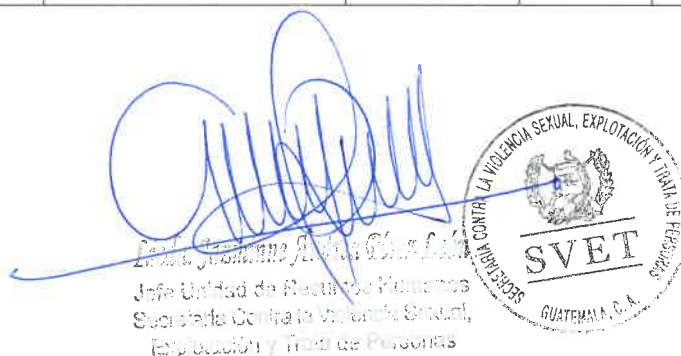 Jefe Unidad de Recursos Humanos
Secretaría Contra la Violencia Sexual,
Explotación y Trata de Personas
SECRETARIA CONTRA LA VIOLENCIA SEXUAL, EXPLOTACIÓN Y TRATA DE PERSONAS
SVET
GUATEMALA, C. A.